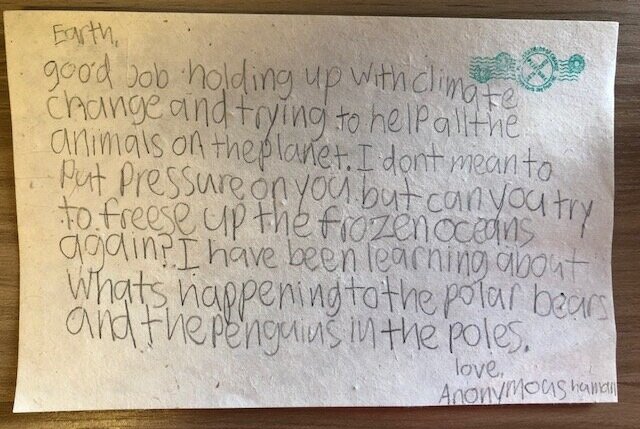 Earth,
good Job holding up with climate
change and trying to help all the
animals on the planet. I dont mean to
put pressure on you but can you try
to freese up the frozen oceans
again? I have been learning about
whats happening to the polar bears
and the penguins in the poles.
love,
Anonymous human